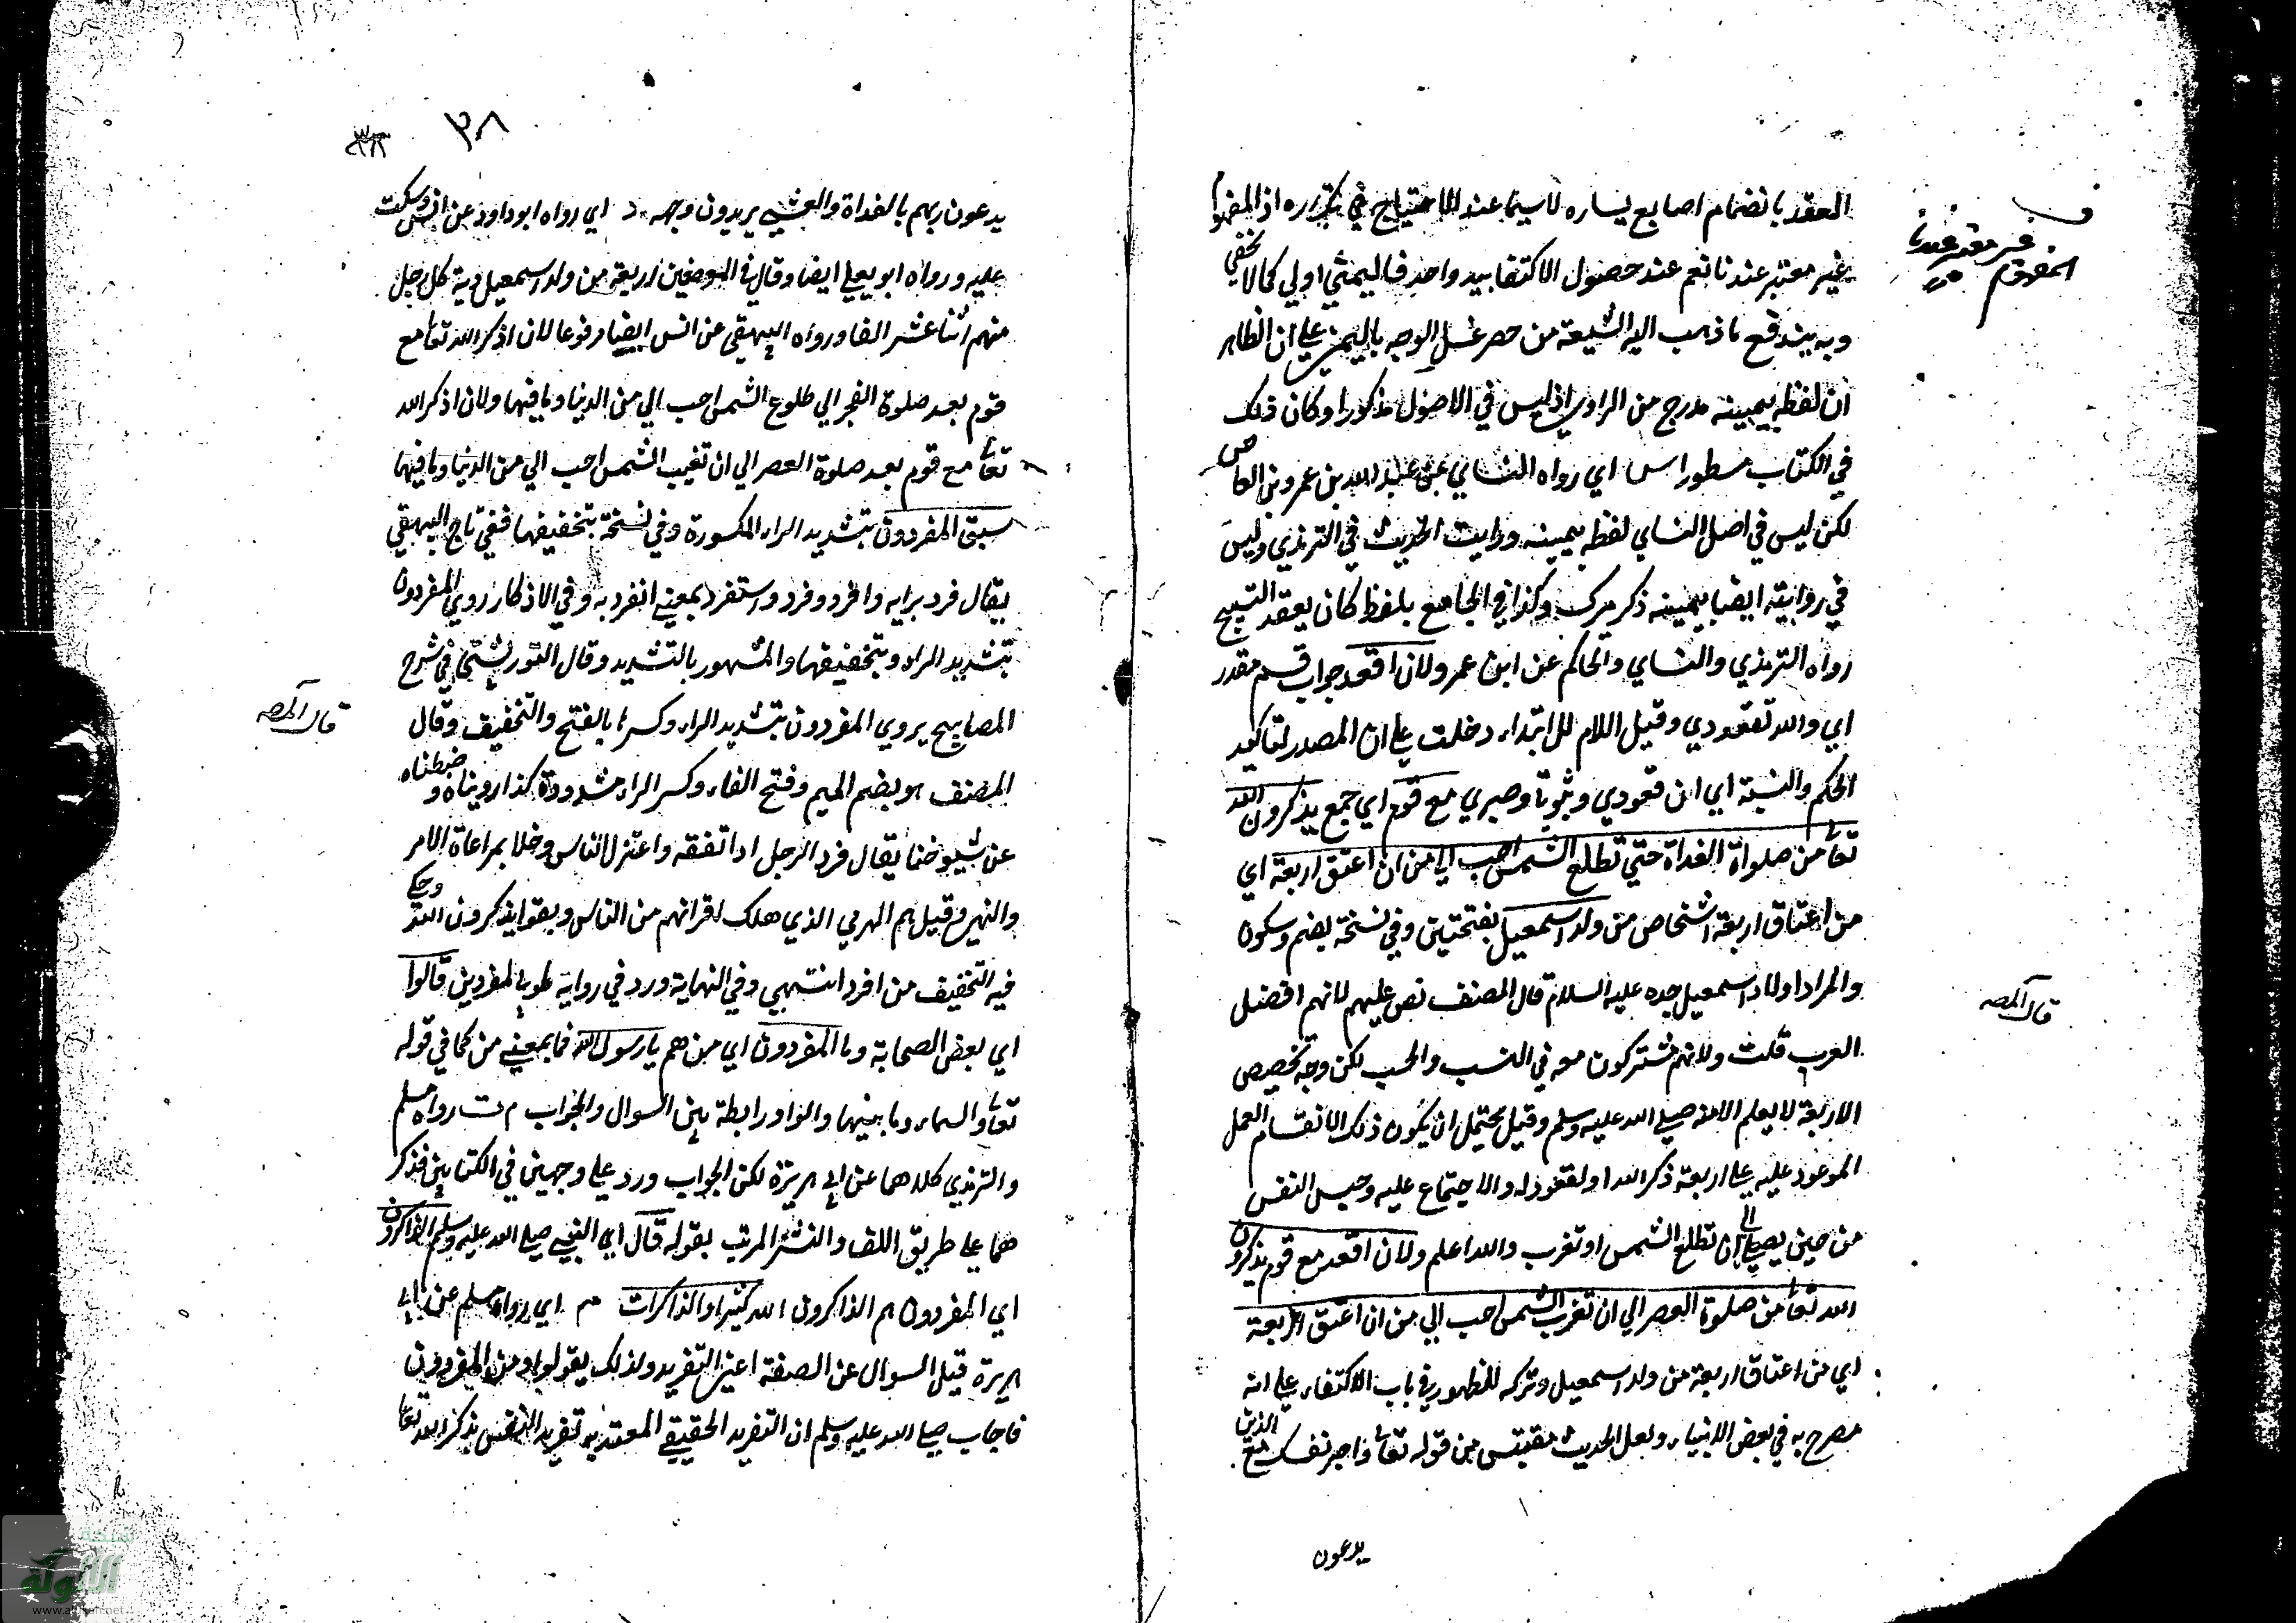 العقد بانضمام اصابع يساره لاسيما عند الاحتياج في تكثيره اذ المفهوم
غير معتبر عندنا نعم عند حصول الاكتفا بيد واحد فاليمني اولي كما لا يخفي
وبه يندفع ما ذهب اليه الشيعة من حصر غسل الوجه باليمين علي ان الظاهر
ان لفظ بيمينه مدرج من الراوي اذ ليس في الاصول مذكورا وكان ذلك
في الكتاب مسطورا س اي رواه النساي عن عبد الله بن عمرو بن العاص
لكن ليس في اصل النساي لفظ بيمينه ورايت الحديث في الترمذي وليس
في روايته ايضا بيمينه ذكر ميرك وكذا في الجامع بلفظ كان يعقد التسبيح
رواه الترمذي والنساي والحاكم عن ابن عمرو لان اقعد جواب قسم مقدر
اي والله لقعودي وقيل اللام للابتداء دخلت علي ان المصدر لتاكيد
الحكم والنسبة اي ان قعودي وثبوتي وصبري مع قوم اي جمع يذكرون الله
تعا من صلواة الغداة حتي تطلع الشمس احب الي من ان اعتق اربعة اي
من اعتاق اربعة اشخاص من ولد اسمعيل بفتحتين وفي نسخة بضم وسكون
والمراد اولاد اسمعيل جده عليه السلام قال المصنف نص عليهم لانهم افضل
العرب قلت ولانهم مشتركون معه في النسب والحسب لكن وجه تخصيص
الاربعة لا يعلم الا منه صلي الله عليه وسلم وقيل يحتمل ان يكون ذلك لانقسام العمل
الموعود عليه علي اربعة ذكر الله او لقعود له والاجتماع عليه وحبس النفس
من حين يصلي الي ان تطلع الشمس او تغرب والله اعلم ولان اقعد مع قوم يذكرون
الله تعا من صلوة العصر الي ان تغرب الشمس احب الي من ان اعتق اربعة
اي من اعتاق اربعة من ولد اسمعيل وتركه للظهور في باب الاكتفاء علي انه
مصرح به في بعض الانبياء ولعل الحديث مقتبس من قوله تعا واصبر نفسك مع الذين
يدعون
ف
المفهوم غير معتبر عندنا
قال المصه
٣٨
يدعون ربهم بالغداة والعشي يريدون وجهه د اي رواه ابوداود عن انس وسكت
عليه ورواه ابو يعلي ايضا وقال في الموضعين اربعة من ولد اسمعيل دية كل رجل
منهم اثنا عشر الفا ورواه البيهقي عن انس ايضا مرفوعا لان اذكر الله تعا مع
قوم بعد صلوة الفجر الي طلوع الشمس احب الي من الدنيا وما فيها ولان اذكر الله
تعا مع قوم بعد صلوة العصر الي ان تغيب الشمس احب الي من الدنيا وما فيها
سبق المفردون بتشديد الراء المكسورة وفي نسخة بتخفيفها ففي تاج البيهقي
يقال فرد برايه وافرد وفرد واستفرد بمعني انفرد به وفي الاذكار روي المفردون
بتشديد الراء وبتخفيفها والمشهور بالتشديد وقال التوربشتي في شرح
المصابيح يروي المفردون بتشديد الراء وكسرها بالفتح والتخفيف وقال
المصنف هو بضم الميم وفتح الفاء وكسر الراء مشددة كذا رويناه وضبطناه
عن شيوخنا يقال فرد الرجل اذا تفقه واعتزل الناس وخلا بمراعاة الامر
والنهي وقيل هم الهرمي الذي هلك اقرانهم من الناس وبقوا يذكرون الله وحكي
فيه التخفيف من افرد انتهي وفي النهاية ورد في رواية طوبا للمفردين قالوا
اي بعض الصحابة وما المفردون اي من هم يا رسول الله فما بمعني من كما في قوله
تعا والسماء وما بنيها والواو رابطة بين السوال والجواب م ت رواه مسلم
والترمذي كلاهما عن ابي هريرة لكن الجواب ورد علي وجهين في الكتابين فذكر
هما علي طريق اللف والنشر المرتب بقوله قال اي النبي صلي الله عليه وسلم الذاكرون
اي المفردون هم الذاكرون الله كثيرا والذاكرات م اي رواه مسلم عن ابي
هريرة قيل السوال عن الصفة اعني التفريد ولذلك يقولوا ومن المفردون
فاجاب صلي الله عليه وسلم ان التفريد الحقيقي المعتد به تفريد النفس بذكر الله تعا
قال المصه
شبكة
الألوكة
www.alukah.net